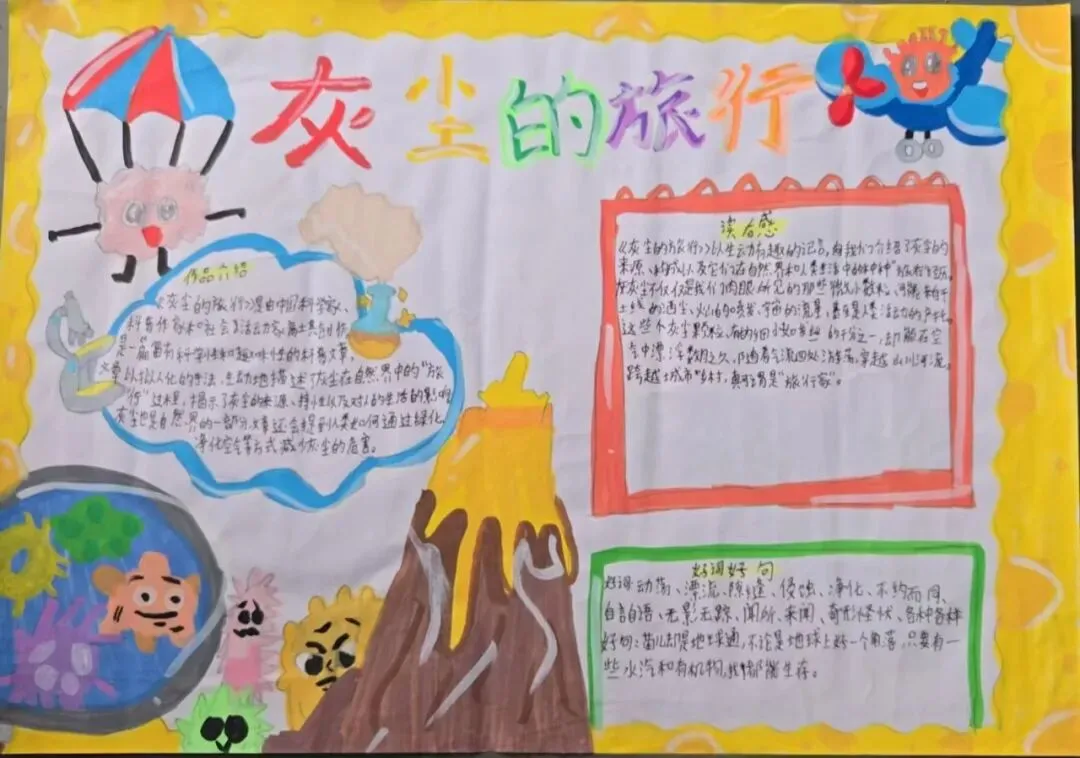 灰尘的旅行
作品介绍
《灰尘的旅行》是由中国科学家、
科普作家和社会活动家高士其创作
是一篇富有科学性和趣味性的科普文章,
文章以拟人化的手法,生动地描述了灰尘在自然界中的"旅
行"过程,揭示了灰尘的来源、特性以及对人的生活的影响
灰尘也是自然界的一部分,文章还会提到人类如何通过绿化、
净化空气等方式减少灰尘的危害。
读后感
《灰尘的旅行》以生动有趣的记言,向我们介绍了灰尘的
来源、构成以及它们在自然界和人类生活中的种种"旅行"经历。
灰尘不仅仅是我们肉眼所见的那些微小颗粒,可能来自于
土缝的洒尘,火山的喷发、宇宙的流星,甚至是人类活动的产物。
这些个灰尘颗粒,有的细小如发丝的千分之一,却能在空
气中漂浮数月之久,随着气流四处游荡,穿越山川河流,
跨越土城市乡村,真可谓是"旅行家"。
好词好句
好词动荡、漂流、隙缝、侵蚀、净化、不约而同、
自言自语、无影无踪、闻所未闻、奇形怪状、各种各样
好句:菌儿却是地球通,不论是地球上好一个角落,只要有一
些水汽和有机物,我都能生存。